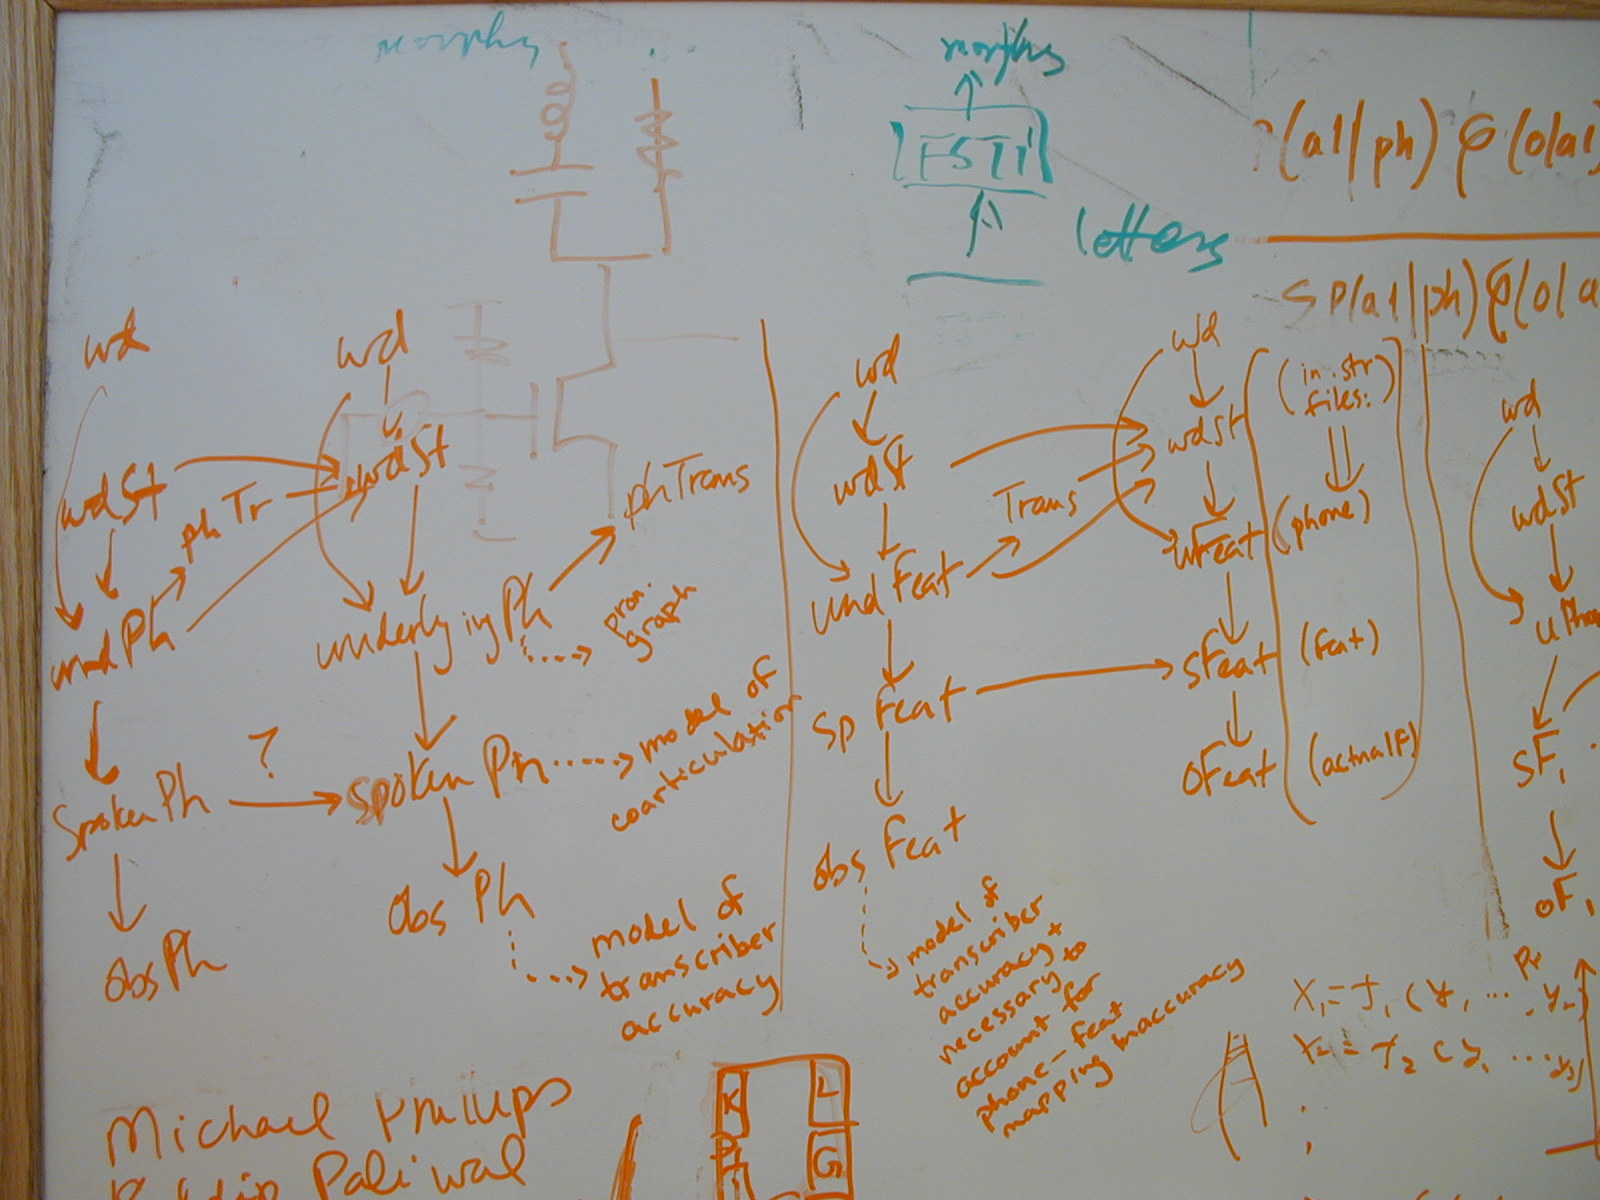 morphs ...
morphs
FST
letters
(a1/ph) P(o/a1)
S P(a1/ph) P(o/a
wd
wdSt
phTr
undPh
Spoken Ph
?
obsPh
wd
wdSt
phTrans
underlyingPh
pron.
graph
spoken Ph
model of
coarticulation
Obs Ph
model of
transcriber
accuracy
wd
wdSt
Trans
und Feat
Sp Feat
obs Feat
model of
transcriber
accuracy +
necessary to
account for
phone-feat
mapping inaccuracy
wd
wdSt
uFeat
sFeat
oFeat
(in .str
files:)
(phone)
(feat)
(actualF)
wd
wdSt
uPho
SF1
oF1
Michael Phillips
Paliwal
K
L
G